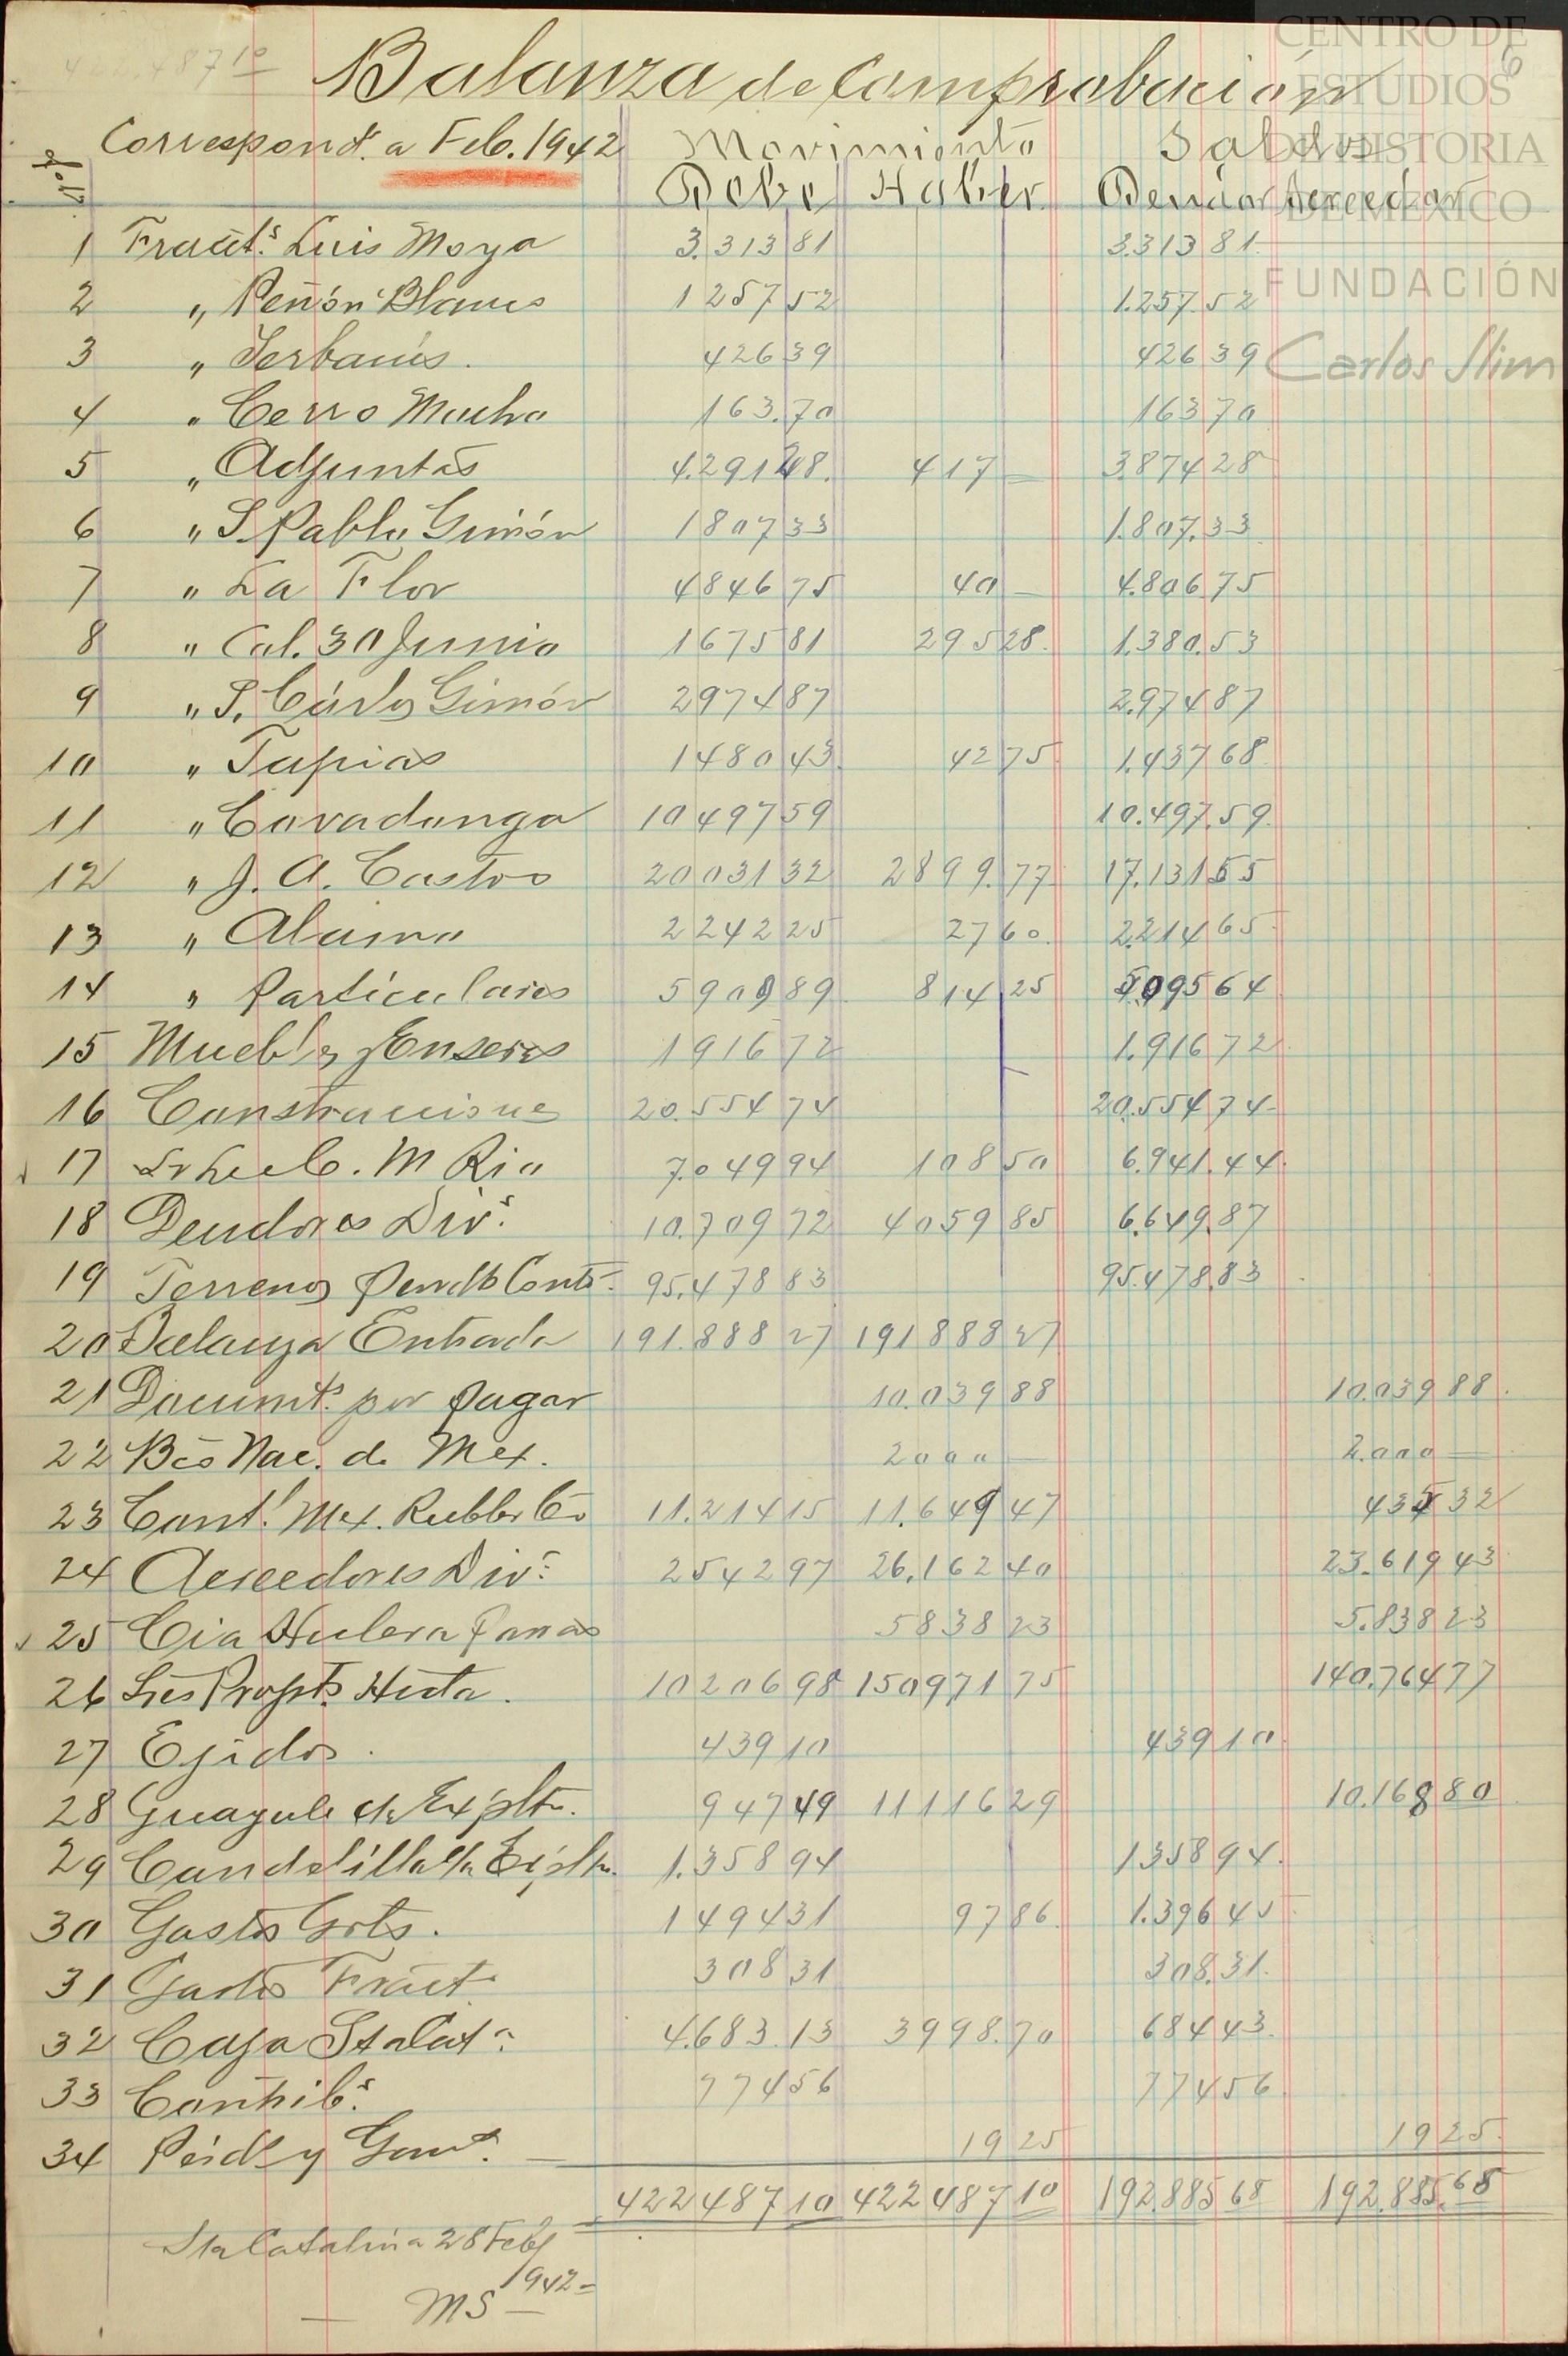 422.487 10
6
CENTRO DE
ESTUDIOS
DE HISTORIA
DE MEXICO
FUNDACIÓN
Carlos Slim
Balanza de Comprobación
Correspond. a Feb. 1942 Movimiento Saldos
Debe Haber Deudor Acreedor
1 Fracct.s Luis Moya 3.313 81 3.313 81
2 „ Peñón Blanco 1257 52 1.257.52
3 „ Yerbanís 426 39 426 39
4 „ Cerro Mocho 163.70 163 70
5 „ Adjuntas 4.291 28 417 — 3.874 28
6 „ S. Pablo Gimón 1807 33 1.807.33
7 „ La Flor 4846 75 40 — 4.806 75
8 „ Col. 30 Junio 1675 81 295 28 1.380.53
9 „ S. Cárlos Gimón 2974 87 2.974 87
10 „ Tapias 1480 43 42 75 1.437 68
11 „ Covadonga 10497 59 10.497.59
12 „ J. A. Castro 20031 32 2899.77 17.131 55
13 „ Alamo 2242 25 27 60 2.214 65
14 „ Particulares 5909 89 814 25 5.095 64
15 Muebls y Enseres 1916 72 1.916 72
16 Construcciones 20.554 74 20.554 74
17 M Rio 7.049 94 108 50 6.941.44
18 Deudores Div.s 10.709 72 4059 85 6.649.87
19 Terrenos Pendts Cont. 95.478 83 95.478.83
20 Balanza Entrada 191.888 27 191888 27
21 Documt.s por Pagar 10.039 88 10.039 88
22 Bco Nac. de Mex. 2000 — 2.000 —
23 Cont.l Mex. Rubber Co 11.214 15 11.649 47 435 32
24 Acreedores Div.s 2542 97 26.162 40 23.619 43
25 Cia Hulera Parras 5838 23 5.838 23
26 Propts. Hcda. 10206 98 150971 75 140.764 77
27 Ejidos 439 10 439 10
28 Guayule de Explt. 947 49 11116 29 10.168 80
29 Candelilla de Explt. 1.358 94 1358 94
30 Gastos Grls. 1494 31 97 86 1.396 45
31 Gastos Fracct. 308 31 308.31
32 Caja Sta Cat.a 4.683.13 3998.70 684 43
33 Contrib.s 774 56 774 56
34 Perds y Gan.s 19 25 19 25
422487 10 422487 10 192.885 68 192.885.68
Sta Catalina 28 Feb/
1942 =
— MS —